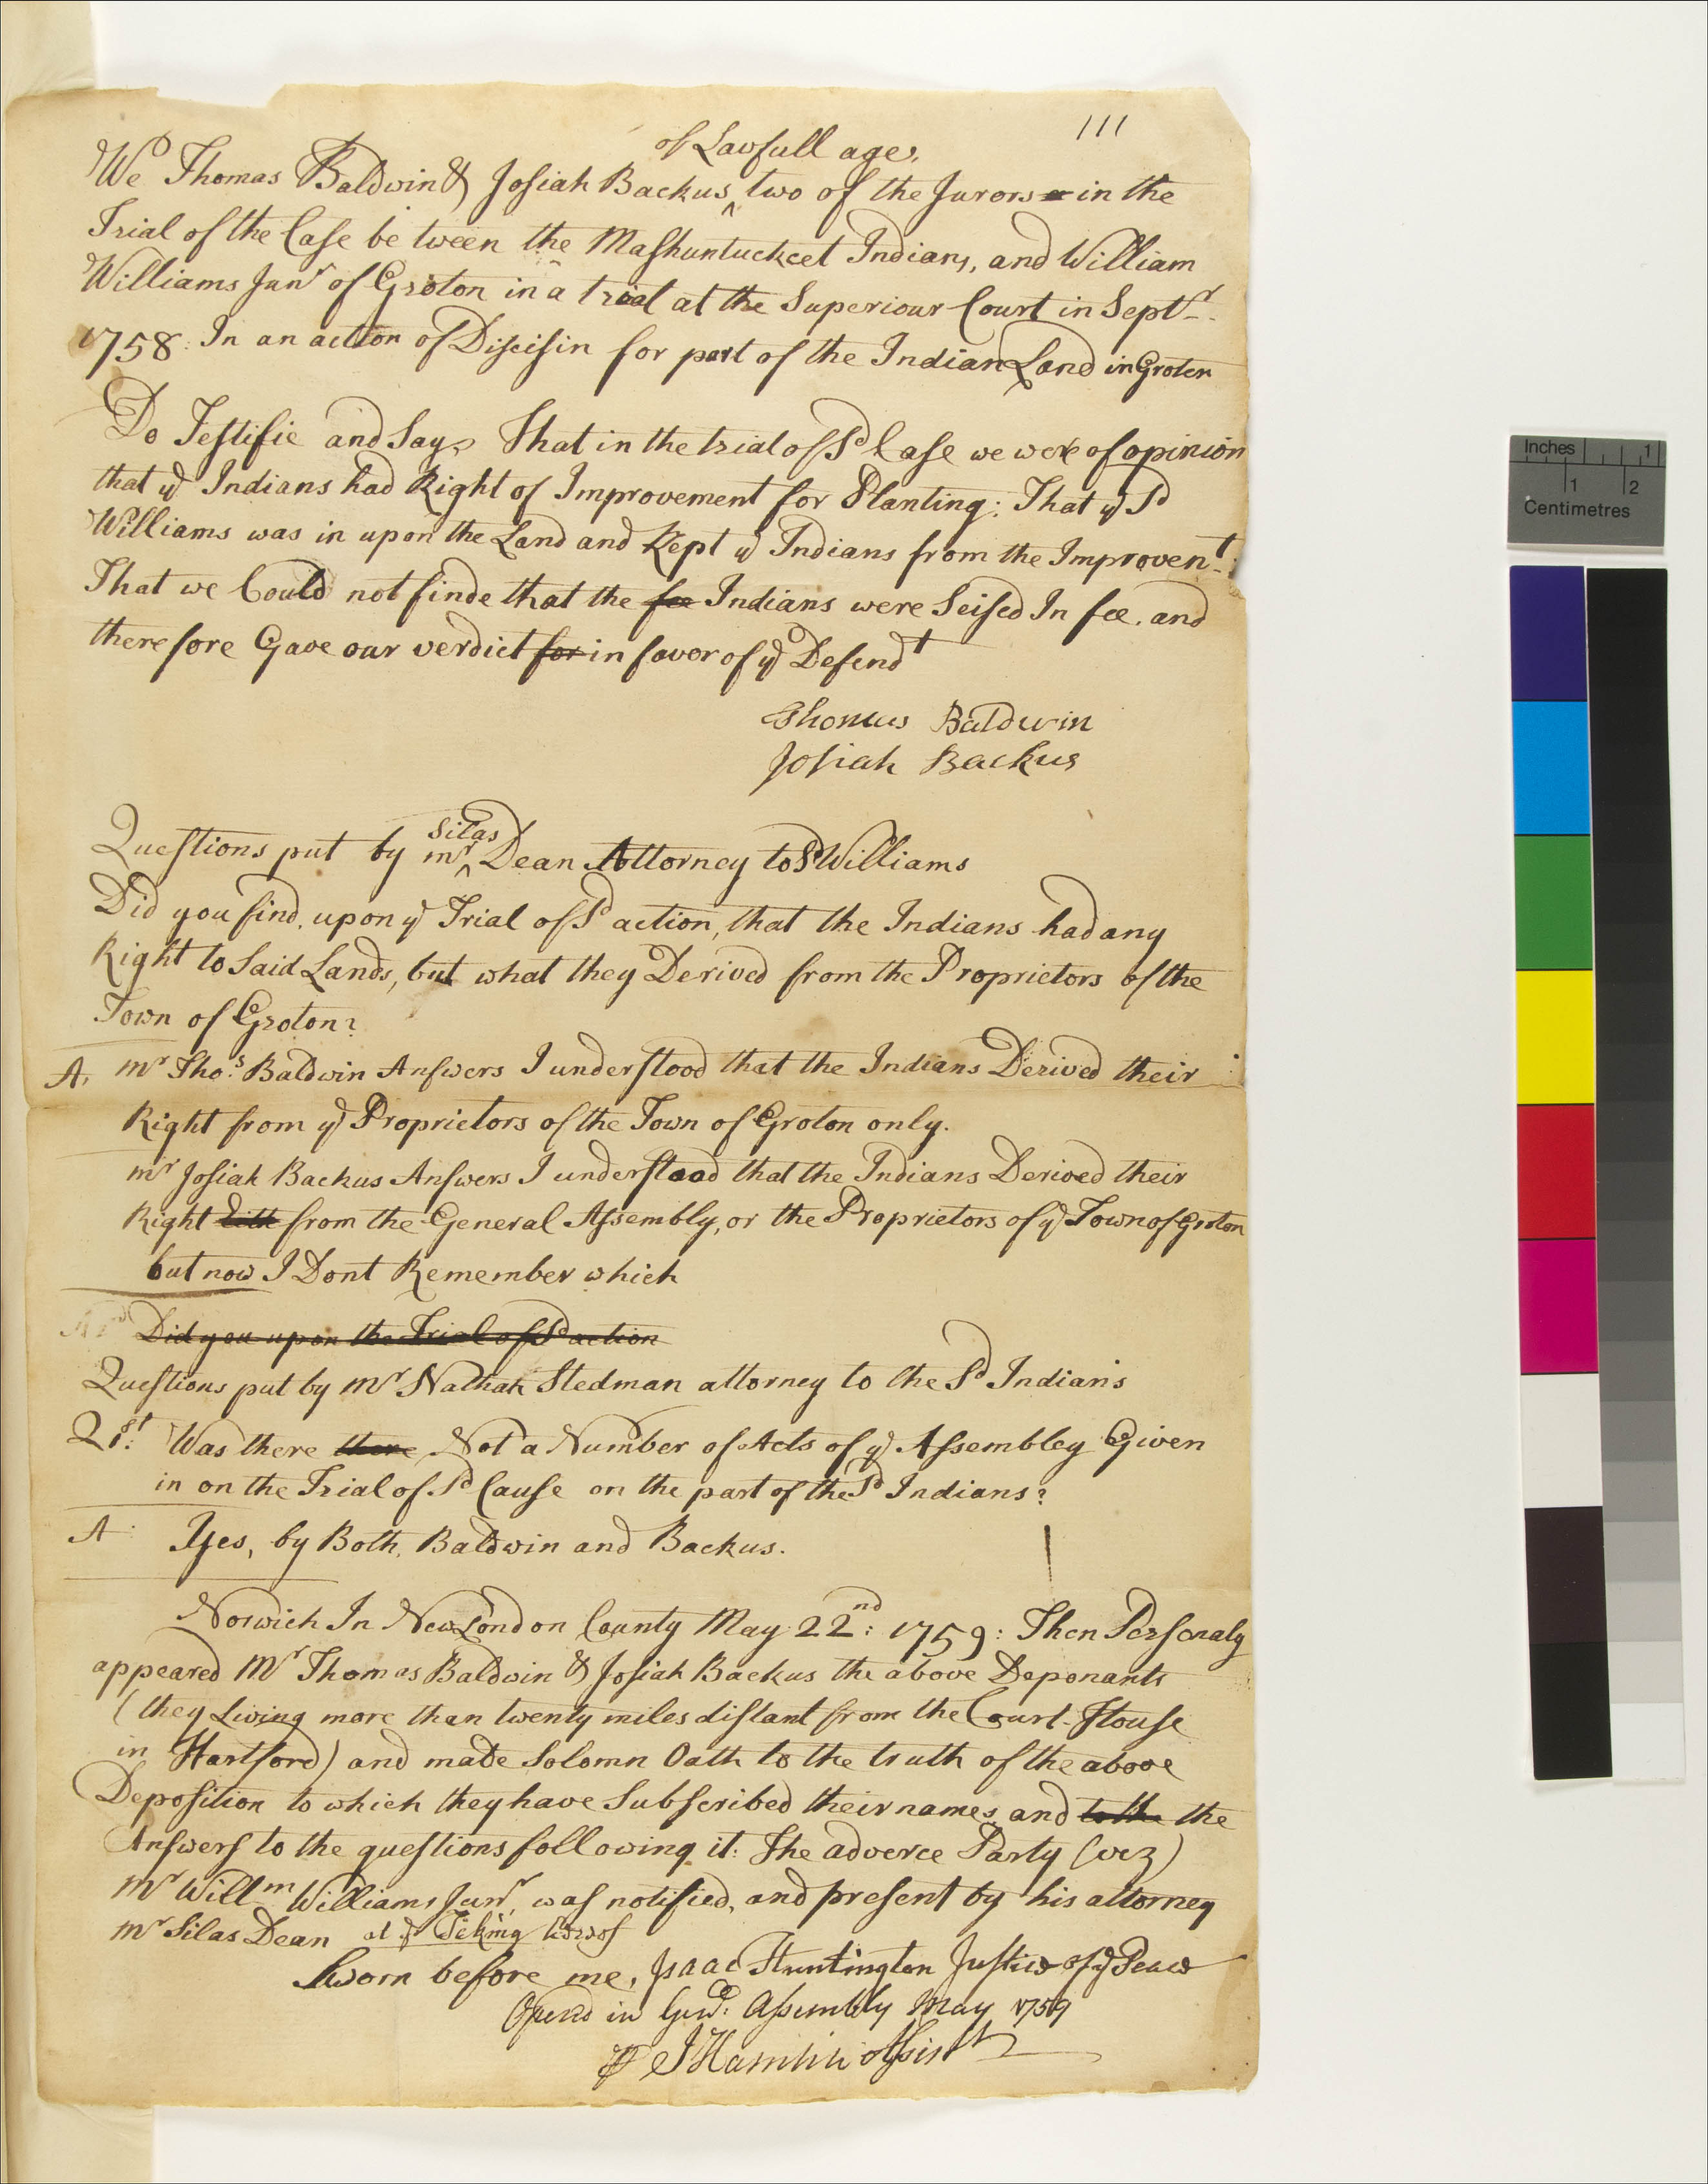 111
of Lawfull age,
We Thomas Baldwin & Josiah Backus ^ two of the Jurors in the
Trial of the Case be tween the Mashuntuckcet Indians, and William
Williams Junr of Groton in a trial at the Superiour Court in Septr
1758: In an action of Diseisin for part of the Indian Land in Groton
Do Testifie and Say, That in the trial of Sd Case we were of opinion
that ye Indians had Right of Improvement for Planting: That ye Sd
Williams was in upon the Land and Kept ye Indians from the Improvent:
That we Could not finde that the fee Indians were Seised In fee, and
therefore Gave our verdict for in favor of ye Defendt
Thomas Baldwin
Josiah Backus
Silas
Questions put by mr ^ Dean Attorney to Sd Williams
Did you find, upon ye Trial of Sd action, that the Indians had any
Right to Said Lands, but what they Derived from the Proprietors of the
Town of Groton?
A, mr Thos. Baldwin Answers I understood that the Indians Derived their
Right from ye Proprietors of the Town of Groton only.
mr Josiah Backus Answers I understood that the Indians Derived their
Right from the General Assembly, or the Proprietors of ye Town of Groton
but now I Dont Remember which
Did you upon the Trial of Sd action
Questions put by mr Nathan Stedman attorney to the Sd Indians
Q 1st: Was there there Not a Number of Acts of ye Assembley Given
in on the Trial of Sd Cause on the part of the Sd Indians?
A: Yes, by Both, Baldwin and Backus.
Norwich In New London County May 22nd: 1759: Then Personaly
appeared Mr Thomas Baldwin & Josiah Backus the above Deponants
(they Living more than twenty miles distant from the Court-House
in Hartford) and made Solomn Oath to the truth of the above
Deposition to which they have Subscribed their names, and to the the
Answers to the questions following it: The adverce Party (viz)
Mr Willm Williams Junr, was notified, and present by his attorney
mr Silas Dean at ye Takeing hereof
Sworn before me, Isaac Huntington Justice of ye Peace
Opened in Genll: Assembly May 1759
J Hamlin Assistt